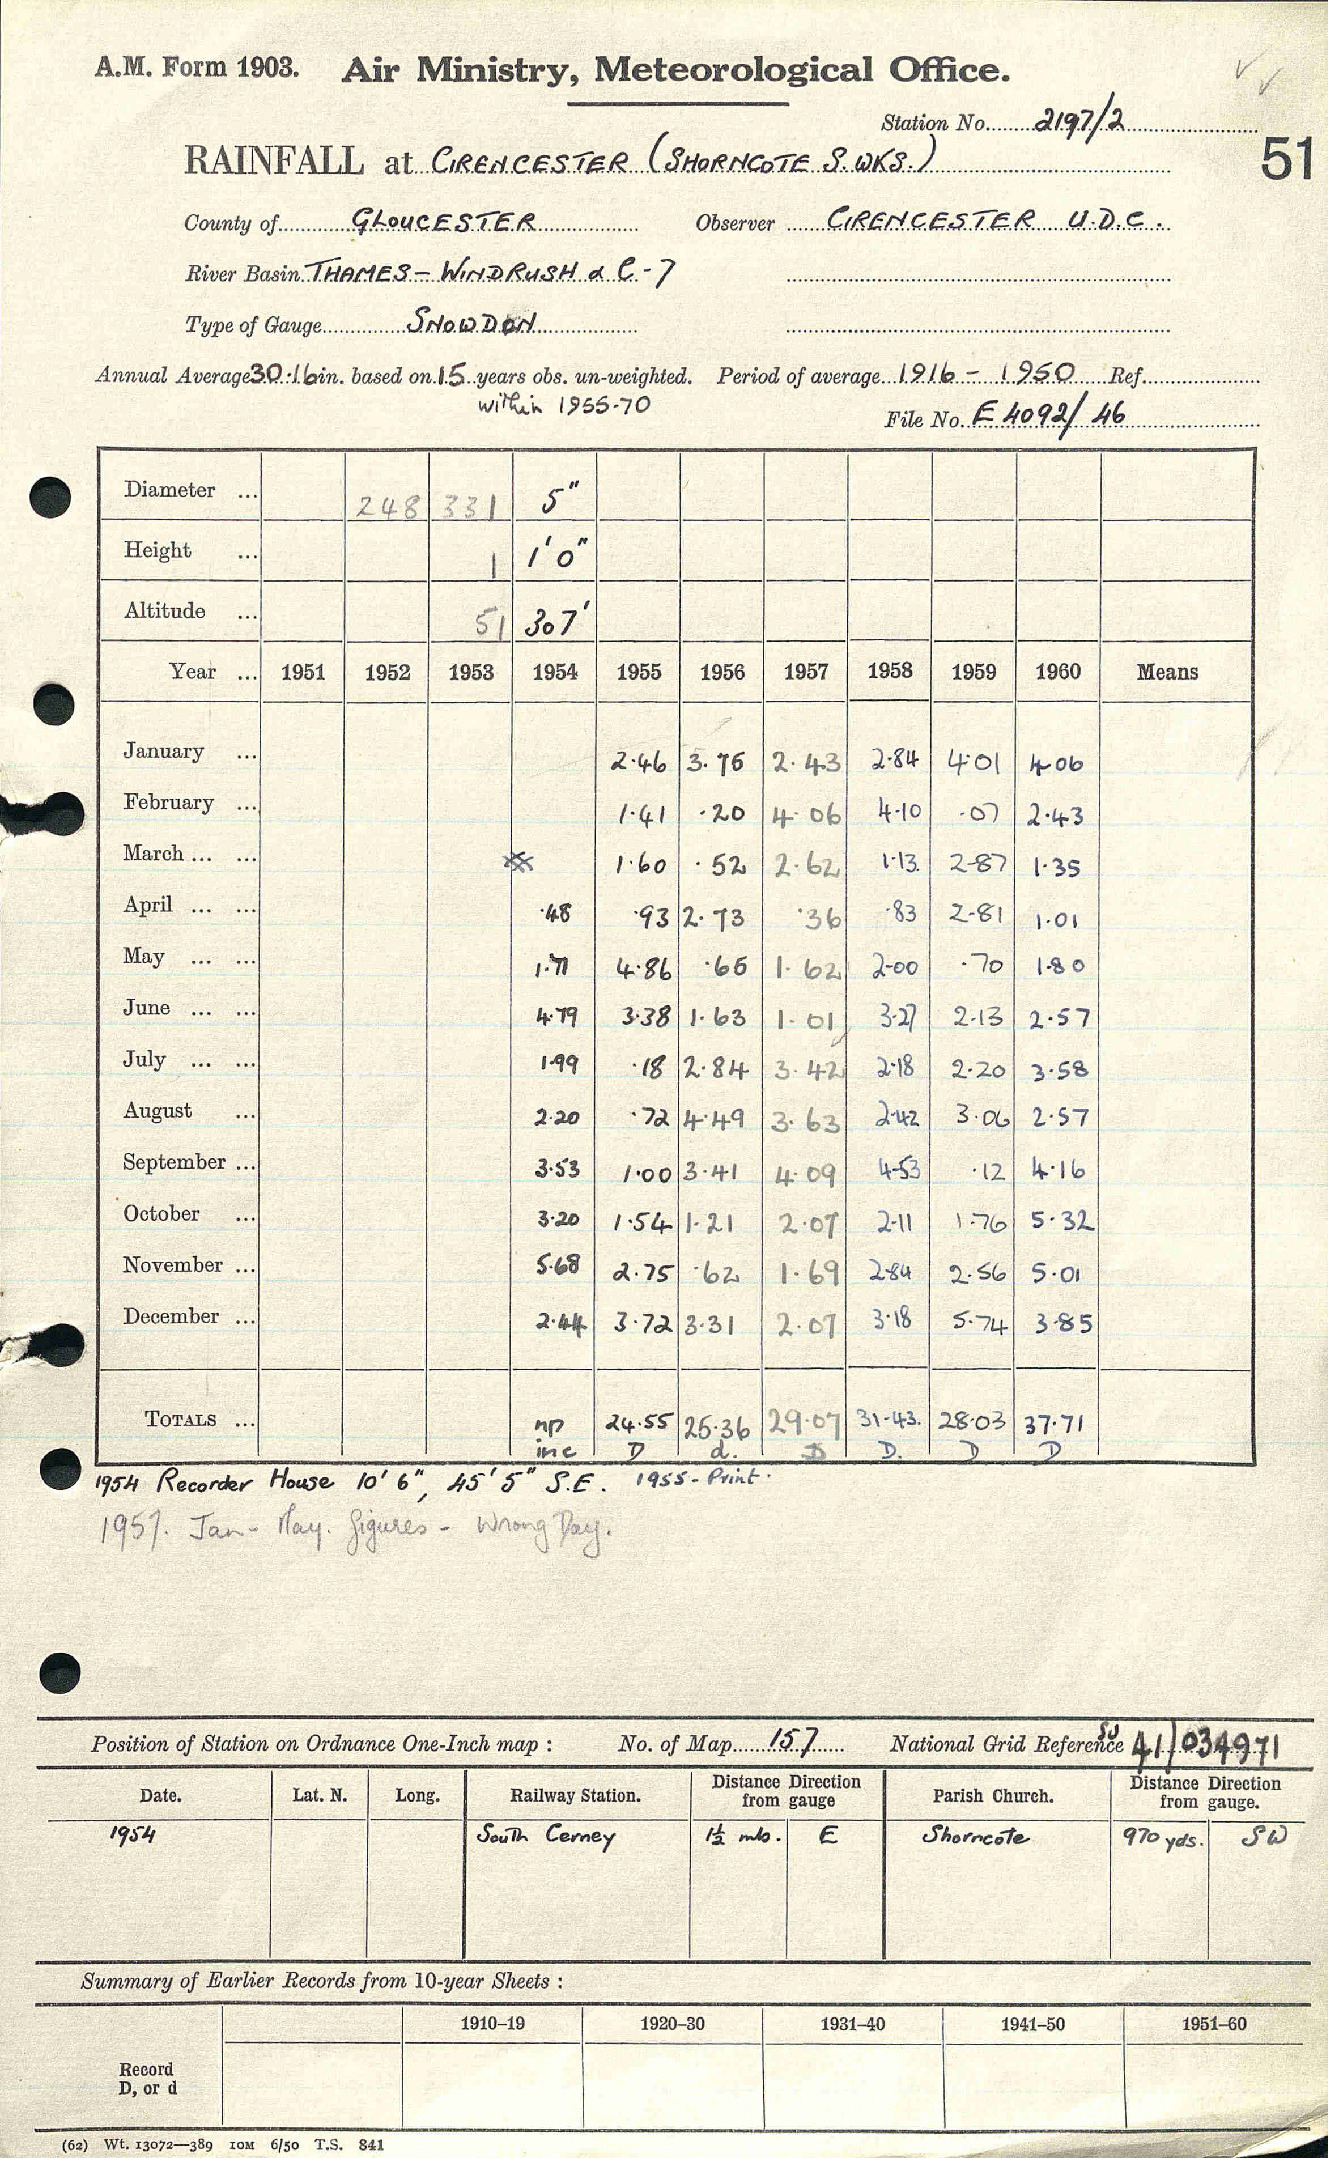 A.M. Form 1903. Air Ministry, Meteorological Office.
Station No. 2197/2
51
RAINFALL at CIRENCESTER (SHORNCOTE S. WKS.)
County of GLOUCESTER Observer CIRENCESTER U.D.C.
River Basin THAMES - WINDRUSH & C - 7
Type of Gauge SNOWDON
Annual Average 30.16 in. based on 15 years obs. un-weighted. Period of average 1916 - 1950 Ref.
within 1955-70
File No. E 4092/46
Diameter ... 248 331 5"
Height ... 1 1'0"
Altitude ... 51 307'
Year ... 1951 1952 1953 1954 1955 1956 1957 1958 1959 1960 Means
January ... 2.46 3.76 2.43 2.84 4.01 4.06
February ... 1.41 .20 4.06 4.10 .07 2.43
March ... ... 1.60 .52 2.62 1.13 2.87 1.35
April ... ... .48 .93 2.73 .36 .83 2.81 1.01
May ... ... 1.71 4.86 .65 1.62 2.00 .70 1.80
June ... ... 4.79 3.38 1.63 1.01 3.27 2.13 2.57
July ... ... 1.99 .18 2.84 3.42 2.18 2.20 3.58
August ... 2.20 .72 4.49 3.63 2.42 3.06 2.57
September ... 3.53 1.00 3.41 4.09 4.53 .12 4.16
October ... 3.20 1.54 1.21 2.07 2.11 1.76 5.32
November ... 5.68 2.75 .62 1.69 2.84 2.56 5.01
December ... 2.44 3.72 3.31 2.07 3.18 5.74 3.85
TOTALS ... np 24.55 25.36 29.07 31.43. 28.03 37.71
inc D d. D D. D D
1954 Recorder House 10' 6", 45' 5" S.E. 1955 - Print.
1957. Jan - May. figures - Wrong Day.
Position of Station on Ordnance One-Inch map : No. of Map 157 National Grid Reference SU 41/034971
Date. Lat. N. Long. Railway Station. Distance Direction from gauge Parish Church. Distance Direction from gauge.
1954 South Cerney 1½ mls. E Shorncote 970 yds. SW
Summary of Earlier Records from 10-year Sheets :
1910–19 1920–30 1931–40 1941–50 1951–60
Record
D, or d
(62) Wt. 13072—389 10M 6/50 T.S. 841